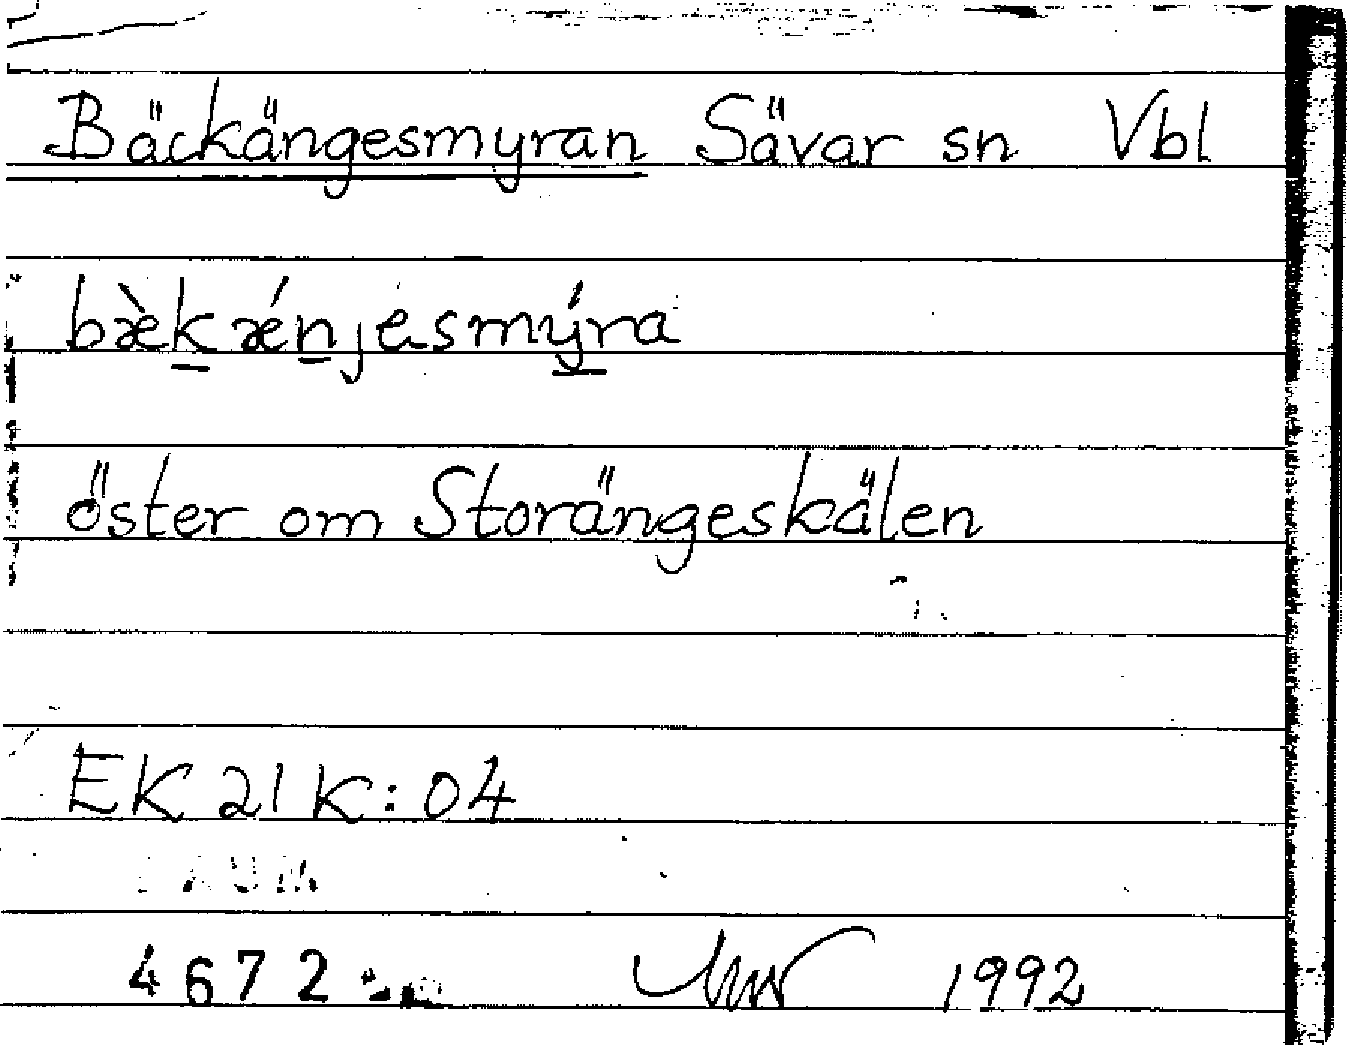 Bäckängesmyran Sävar sn Vbl
bæ̀kǽnjesmýra
öster om Storängeskälen
EK 21K:04
4672
1992